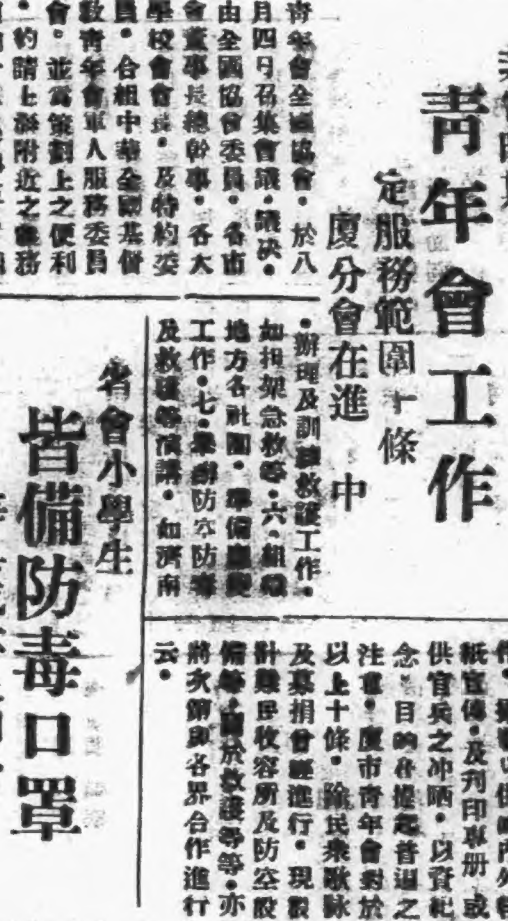 青年會工作
定服務範圍十條
廈分會在進 中
青年會全國協會。於八
月四日召集會議。議决。
由全國協會委員。各市
會董事長總幹事。各大
學校會會長。及特約委
員。合組中華全國基督
教青年會軍人服務委員
會。並爲策劃上之便利
約請上海附近之
。辦理及訓練救護工作。
如担架急救等。六。組織
地方各社團。準備應變
工作。七。舉辦防空防毒
及救護等演講。如濟南
紙宣傳。及刋印專册。或
供官兵之沖晒。以資紀
念。目的在提起普遍之
注重。廈市青年會對於
以上十條。除民衆歌詠
及募捐曾經進行。現設
計難民收容所及防空設
備等。關於救護等等。亦
將次第與各界合作進行
云。
省會小學生
皆備防毒口罩